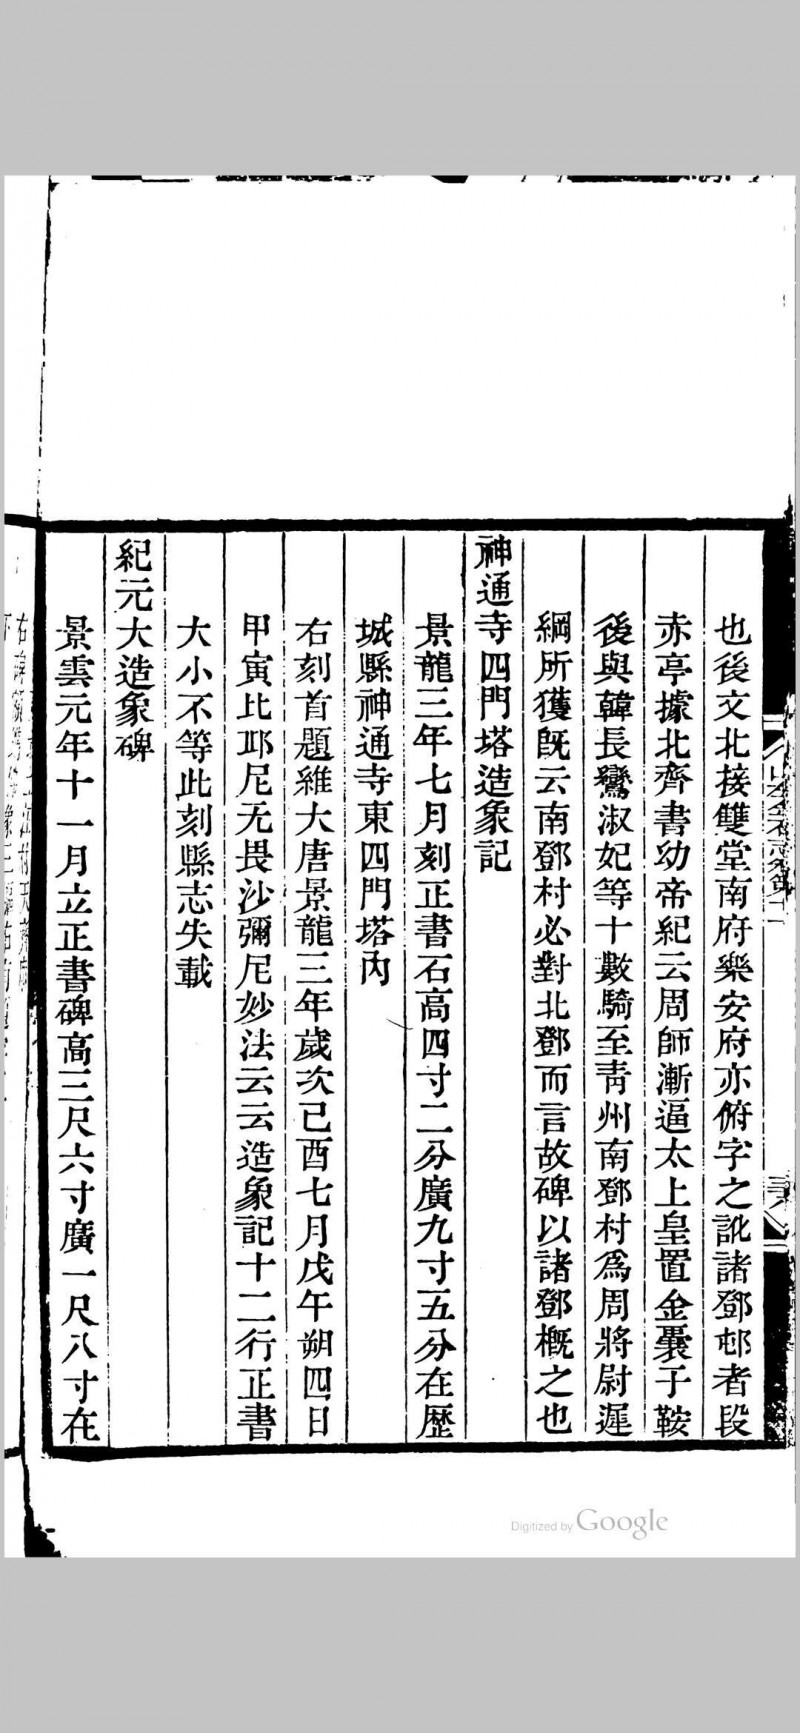 也後文北接雙堂南府樂安府亦俯字之訛諸鄧邨者段
赤亭據北齊書幼帝紀云周師漸逼太上皇置金囊于鞍
後與韓長鸞淑妃等十數騎至靑州南鄧村爲周將尉遲
綱所獲旣云南鄧村必對北鄧而言故碑以諸鄧槪之也
神通寺四門塔造象記
景龍三年七月刻正書石高四寸二分廣九寸五分在歷
城縣神通寺東四門塔內
右刻首題維大唐景龍三年歲次己酉七月戊午朔四日
甲寅比邱尼无畏沙彌尼妙法云云造象記十二行正書
大小不等此刻縣志失載
紀元大造象碑
景雲元年十一月立正書碑高三尺六寸廣一尺八寸在
Digitized by Google